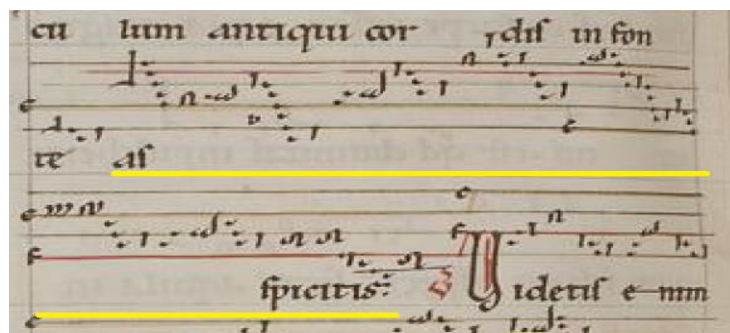 cu lum antiqui cor dis in fon
te as
spicitis. Uidetis e nim